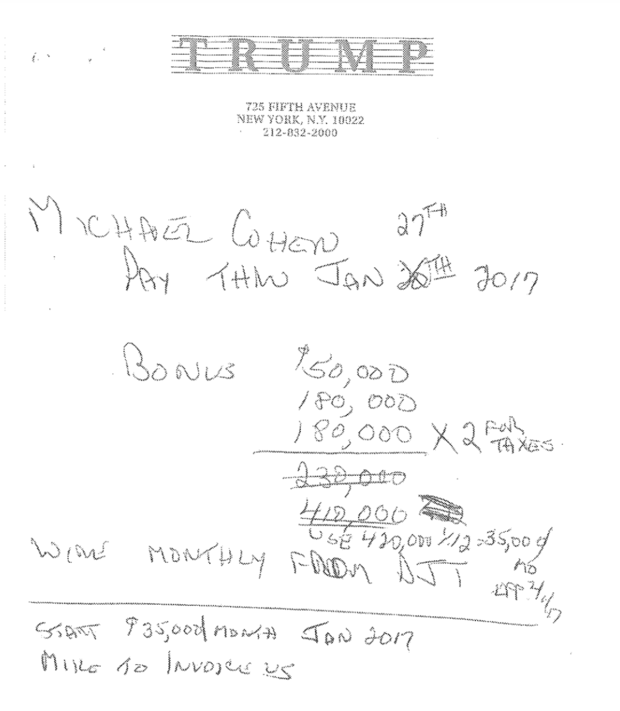 TRUMP
725 FIFTH AVENUE
NEW YORK, N.Y. 10022
212-832-2000
MICHAEL COHEN 27TH
PAY THRU JAN TH 2017
BONUS $50,000
180,000
180,000 X 2 FOR TAXES.
230,000
410,000
USE 420,000 1/12 = 35,000/
MO
WIRE MONTHLY FROM DJT
EFF 2/1/17
START $35,000/MONTH JAN 2017
MIKE TO INVOICE US